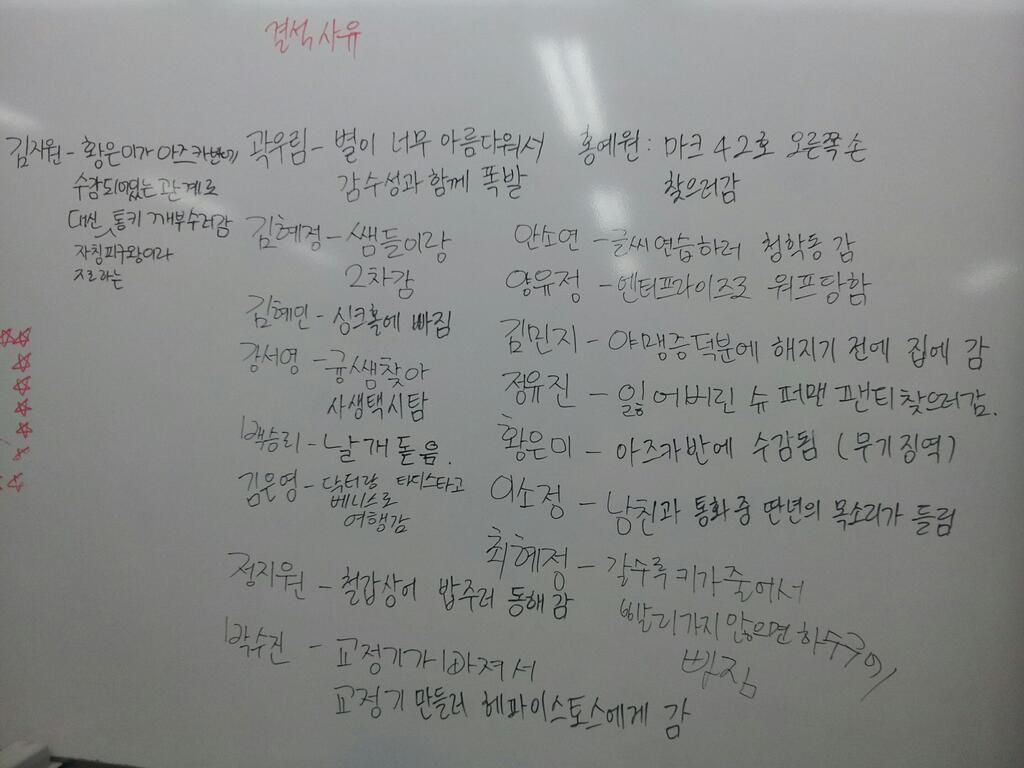 결석 사유
김지원 - 황은미가 아즈카반에
수감되었는 관계로
대신 통키 깨부수러감
자칭피구왕이라
지르라는
곽우림 - 별이 너무 아름다워서
감수성과 함께 폭발
홍예원 : 마크 42호 오른쪽 손
찾으러감
김혜정 - 쌤들이랑
2차감
안소연 - 글씨연습하러 청학동 감
양유정 - 엔터프라이즈로 워프당함
김혜민 - 싱크홀에 빠짐
김민지 - 야맹증덕분에 해지기 전에 집에 감
강서영 - 귱쌤찾아
사생택시탐
정유진 - 잃어버린 슈퍼맨 팬티찾으러감.
백승리 - 날개 돋음.
황은미 - 아즈카반에 수감됨 (무기징역)
김은영 - 닥터랑 타디스타고
베니스로
여행감
이소정 - 남친과 통화중 딴년의 목소리가 들림
최혜정 - 갈수록 키가 줄어서
빨리가지 않으면 하수구에
빠짐
정지원 - 철갑상어 밥주러 동해감
박수진 - 교정기가 빠져서
교정기 만들러 헤파이스토스에게 감